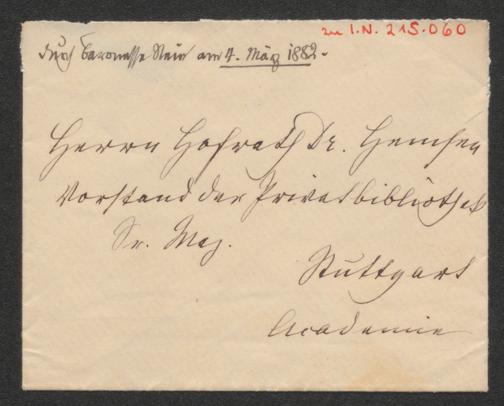 zu I.N. 215.060
durch Baronesse Stein am 4. März 1882.
Herrn Hofrath Dr. Hemsen
Vorstand der Privatbibliothek
Sr. Maj.
Stuttgart
Academie